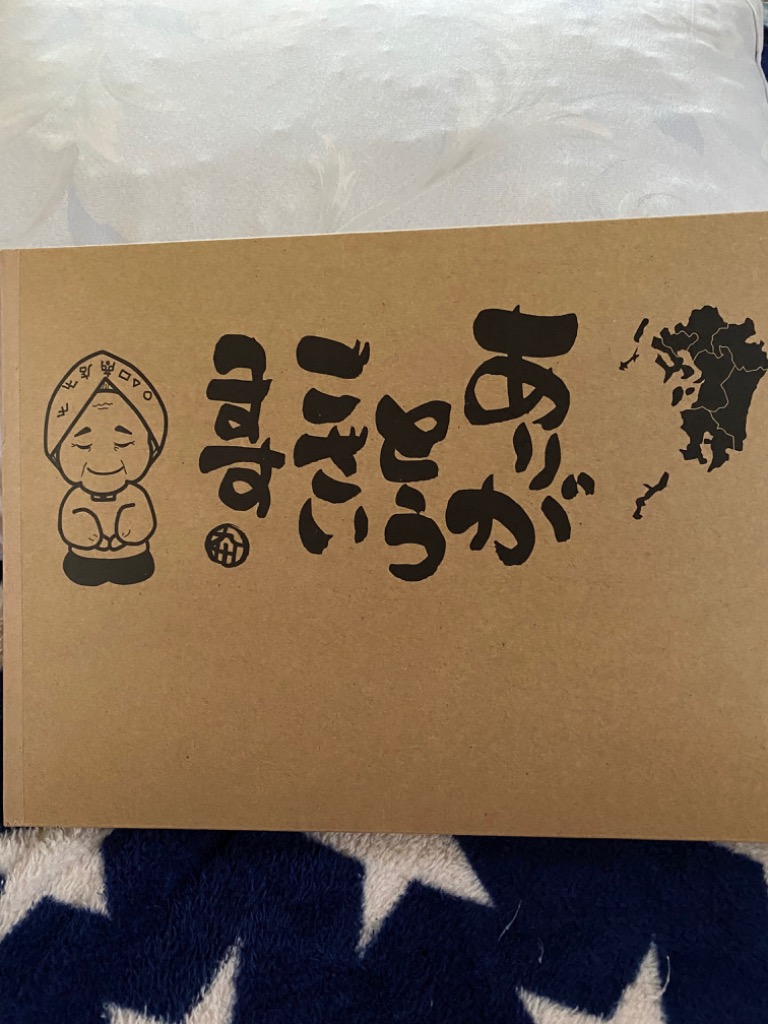 ありが
とう
ござい
ます